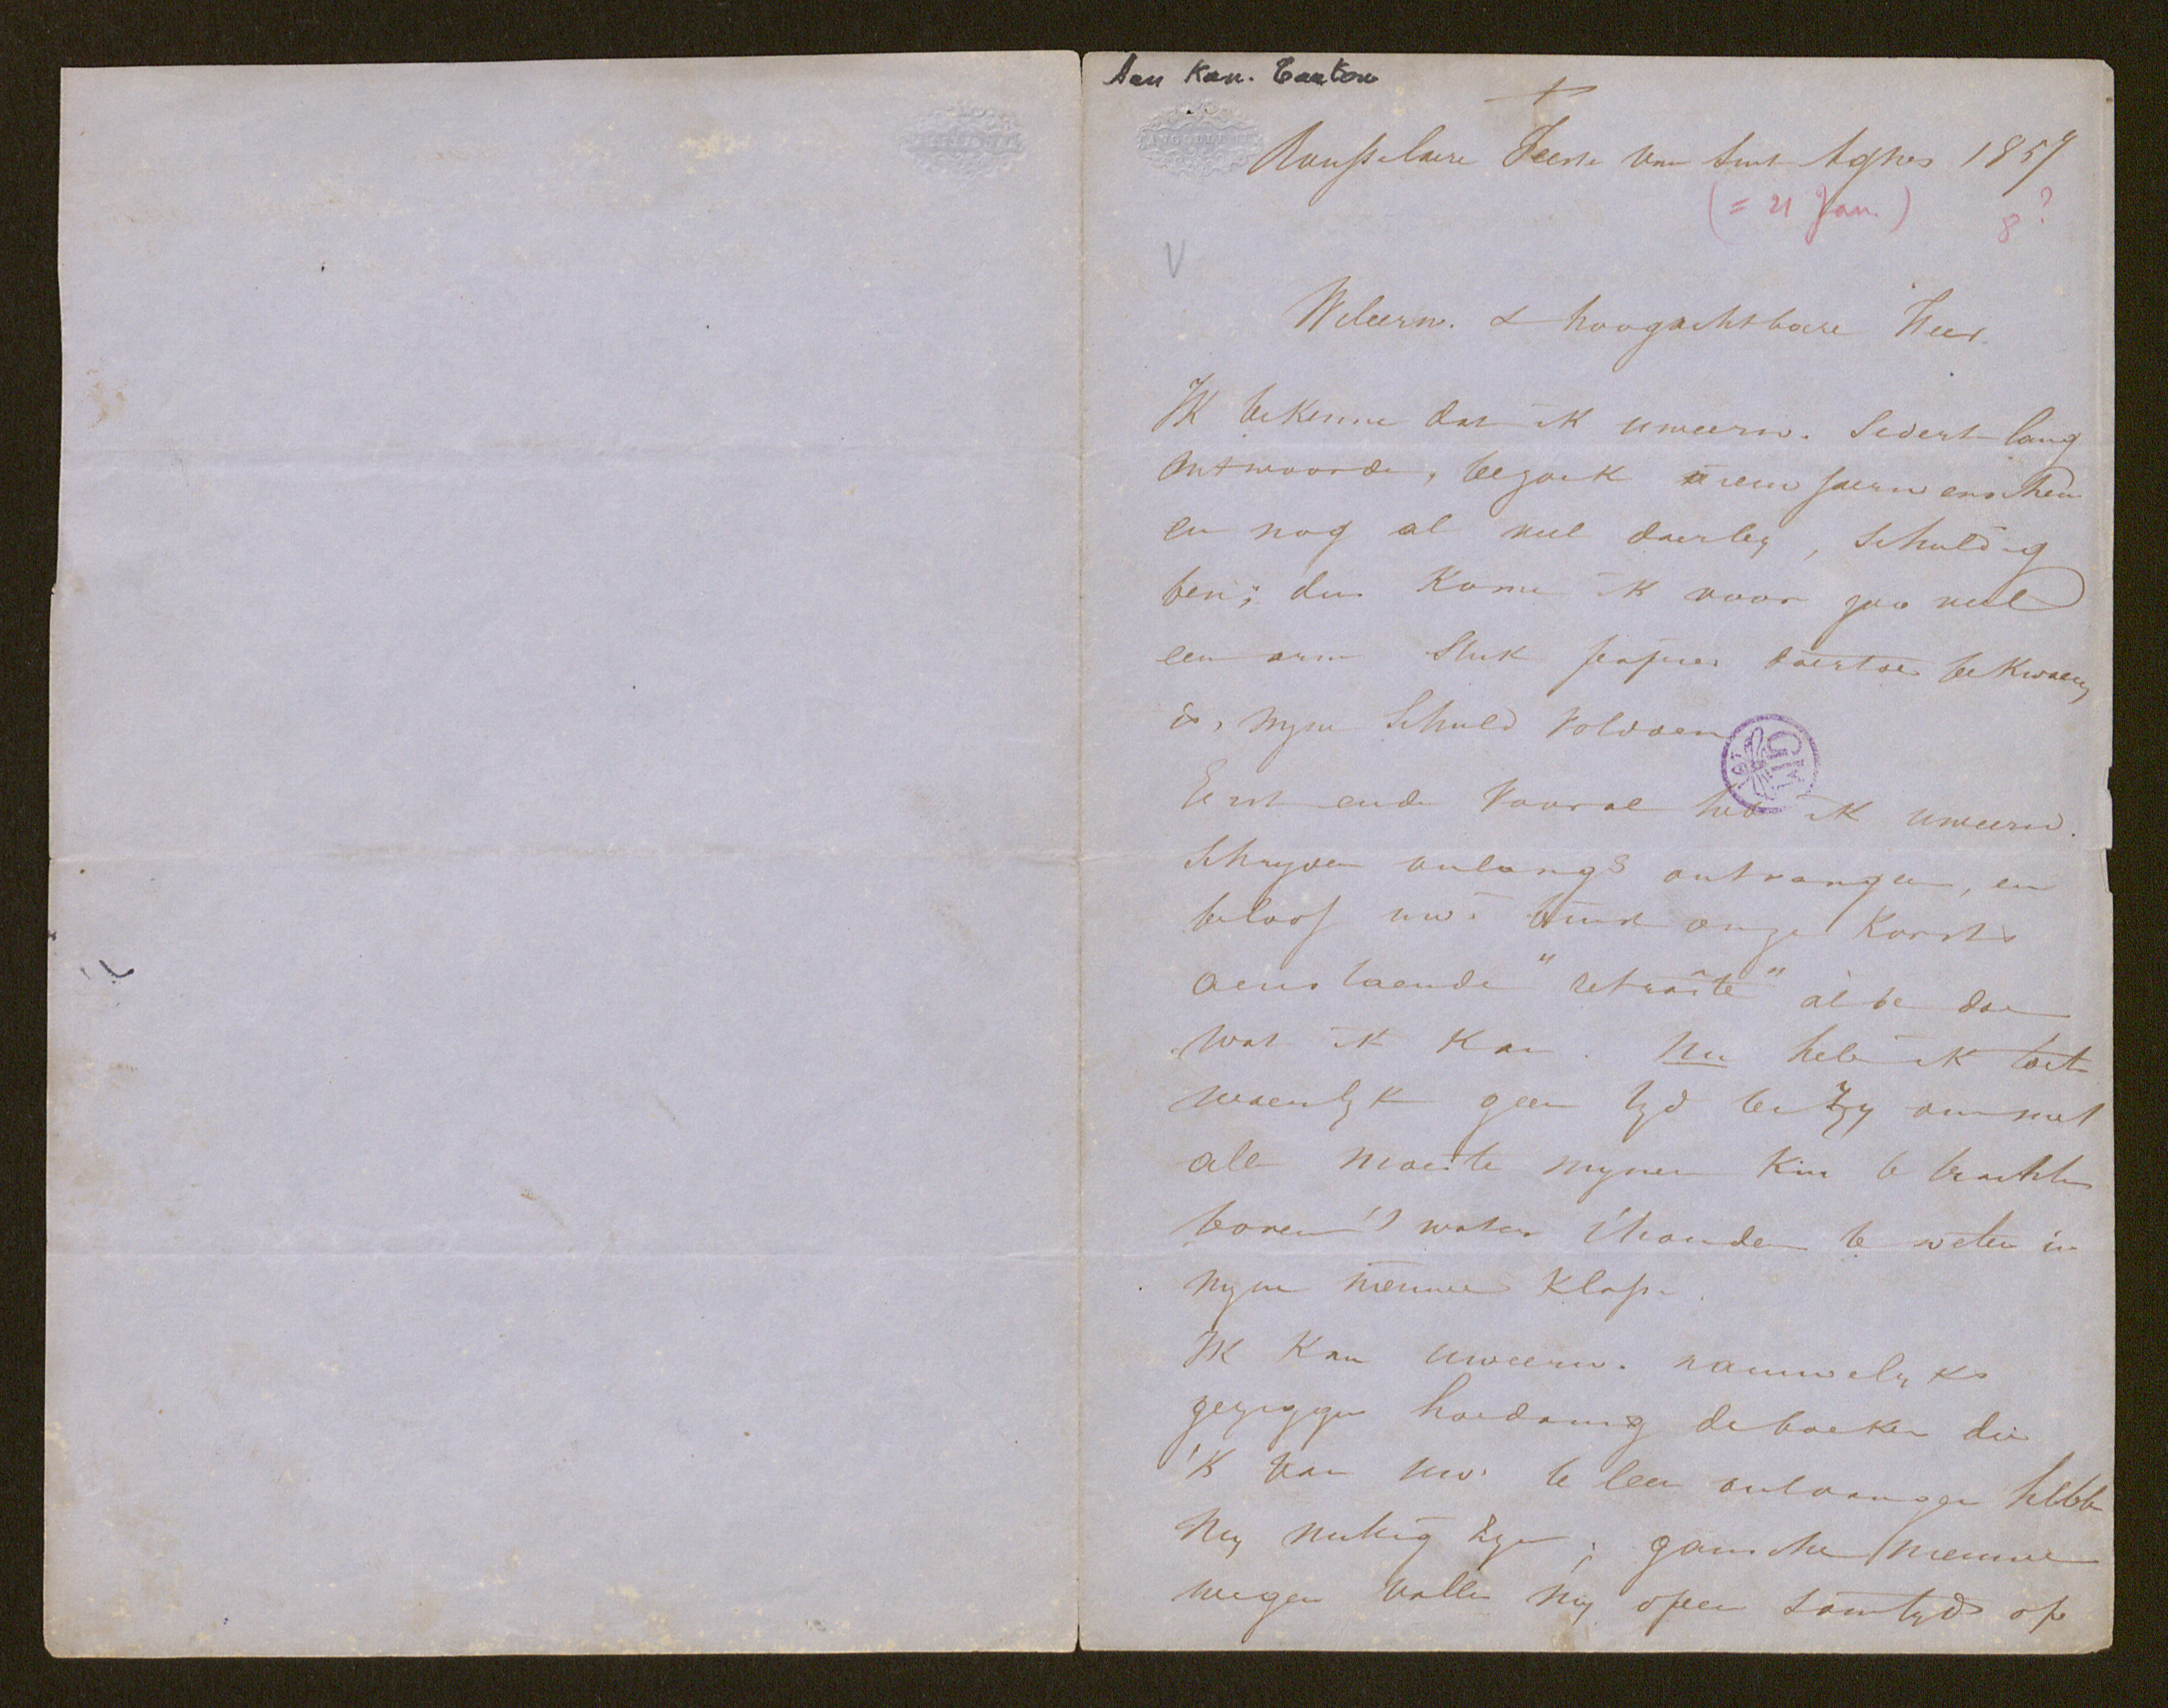 Aen Kan. Carton
+
Rousselaere Feeste van Sint Agnes 1857
(= 21 Jan.) 8?
V
Weleerw. & hoogachtbare Heer
Ik bekenne dat ik uweerw. sedert lang
antwoorde, bezoek niewjaerwenschen
en nog al veel daerby, schuldig
ben; dus kome ik voor zoo veel
een arm stuk papier daertoe bekwaem
is, myne schuld voldoen
Eerst ende vooral heb ik uweerw.
schryven onlangs ontvangen, en
beloof uw. binst onze korts
aenstaende "retraite" al te doen
wat ik kan. Nu heb ik toch
waerlyk geen tyd
alle moeite mynen kin te trachten
boven 't water t'houden te weten in
myne nieuwe klasse.
Ik kan uweerw. nauwelyks
gezeggen hoedanig de boeken die
'k van uw. te leen ontvangen hebbe
my nuttig zyn; gansche nieuwe
wegen vallen my open somtyds op